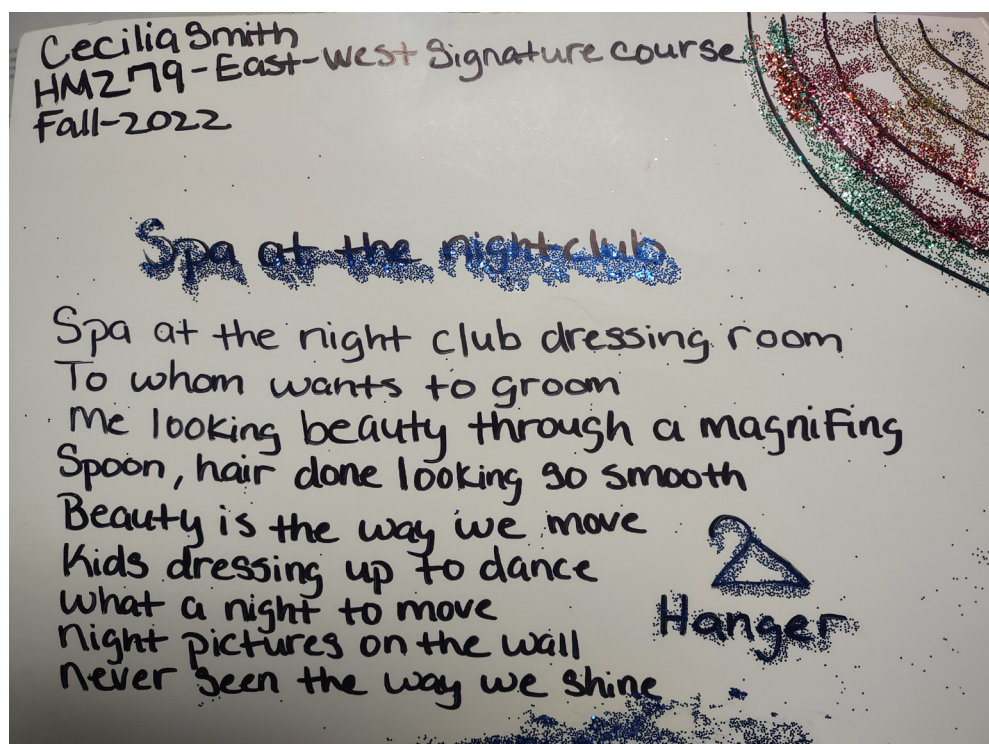 Cecilia Smith
HM279-East-West Signature course
Fall-2022
Spa at the nightclub
Spa at the night club dressing room
To whom wants to groom
Me looking beauty through a magnifing
Spoon, hair done looking so smooth
Beauty is the way we move
Kids dressing up to dance
what a night to move
night pictures on the wall
never seen the way we shine
Hanger